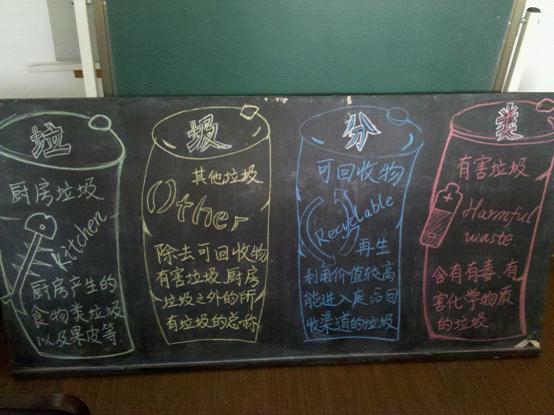 垃
厨房垃圾
Kitchen
厨房产生的
食物类垃圾
以及果皮等
圾
其他垃圾
Other
除去可回收物.
有害垃圾、厨房
垃圾之外的所
有垃圾的总称
分
可回收物
Recyclable
再生
利用价值较高
能进入废品回
收渠道的垃圾
类
有害垃圾
Harmful
waste
含有有毒、有
害化学物质
的垃圾